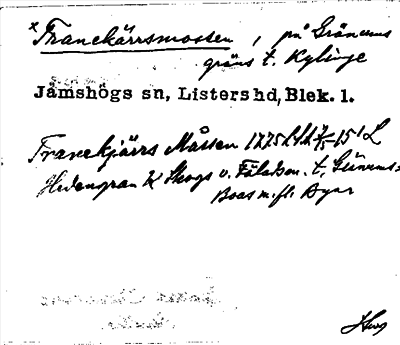 × Tranekärrsmossen, på Gränums
gräns t. Kylinge
Jämshögs sn, Listers hd, Blek. l.
Tranekjärrs Måssen 1775
Hedengran K Skogs o. Fäladsm. t. Gränums
Boas m. fl. Byar